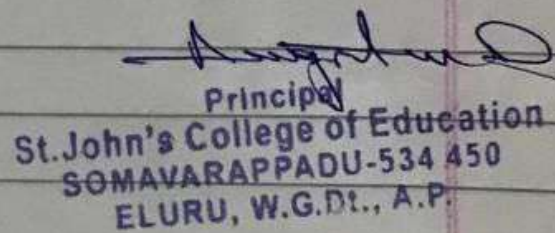 Principal
St.John's College of Education
SOMAVARAPPADU-534 450
ELURU, W.G.Dt., A.P.